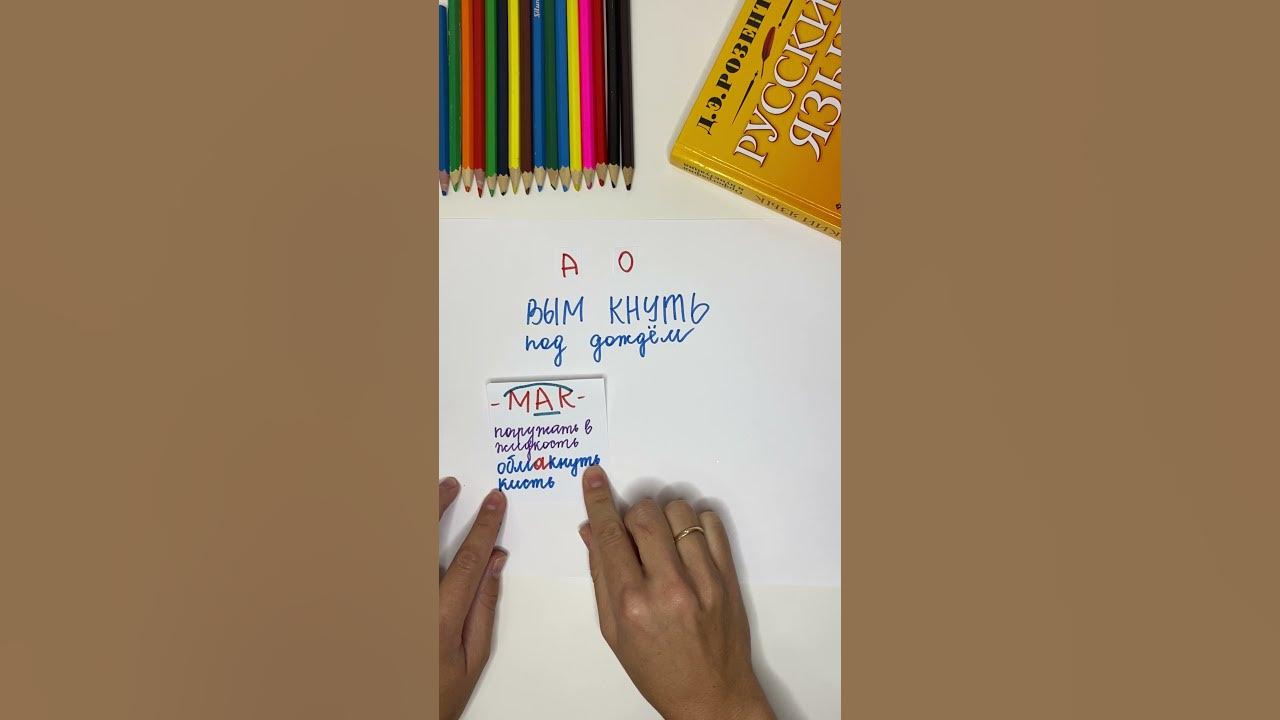 Д.Э.РОЗЕНТ
РУССКИ
ЯЗЫ
КИЙ ЯЗЫК
А О
ВЫМ КНУТЬ
под дождём
-МАК-
погружать в
жидкость
обмакнуть
кисть